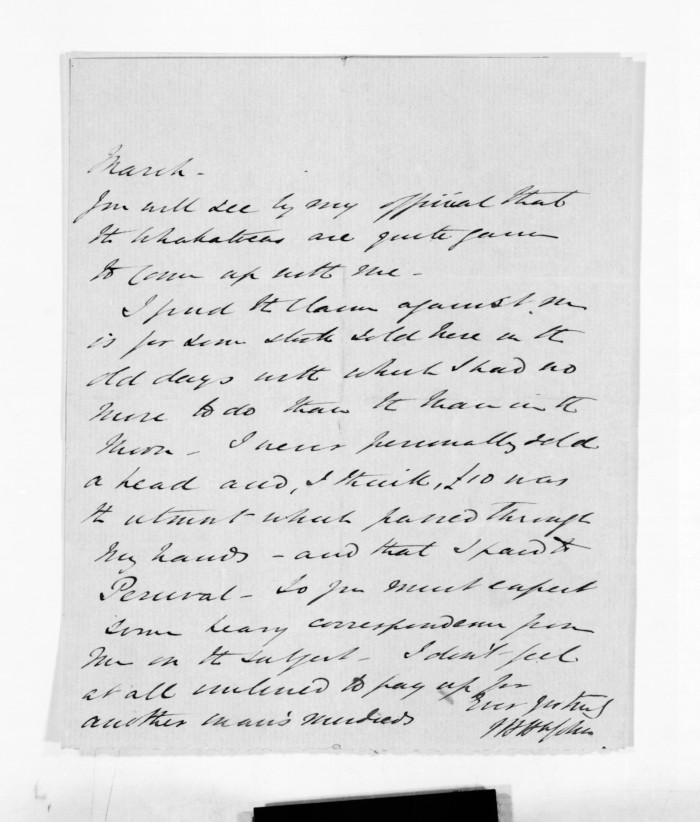 March -
You will see by my official that
the Whakatweas are quite game
to come up with me -
I find the claim against me
is for some stock sold here in the
old days with which I had no
more to do than the Man in the
Moon - I never personally sold
a head and, I think, £10 was
the utmost which passed through
my hands - and that I paid to
Percival - So you must expect
some heavy correspondence from
me on the subject - I don't feel
at all inclined to pay up for
another man's misdeeds
Ever yours truly